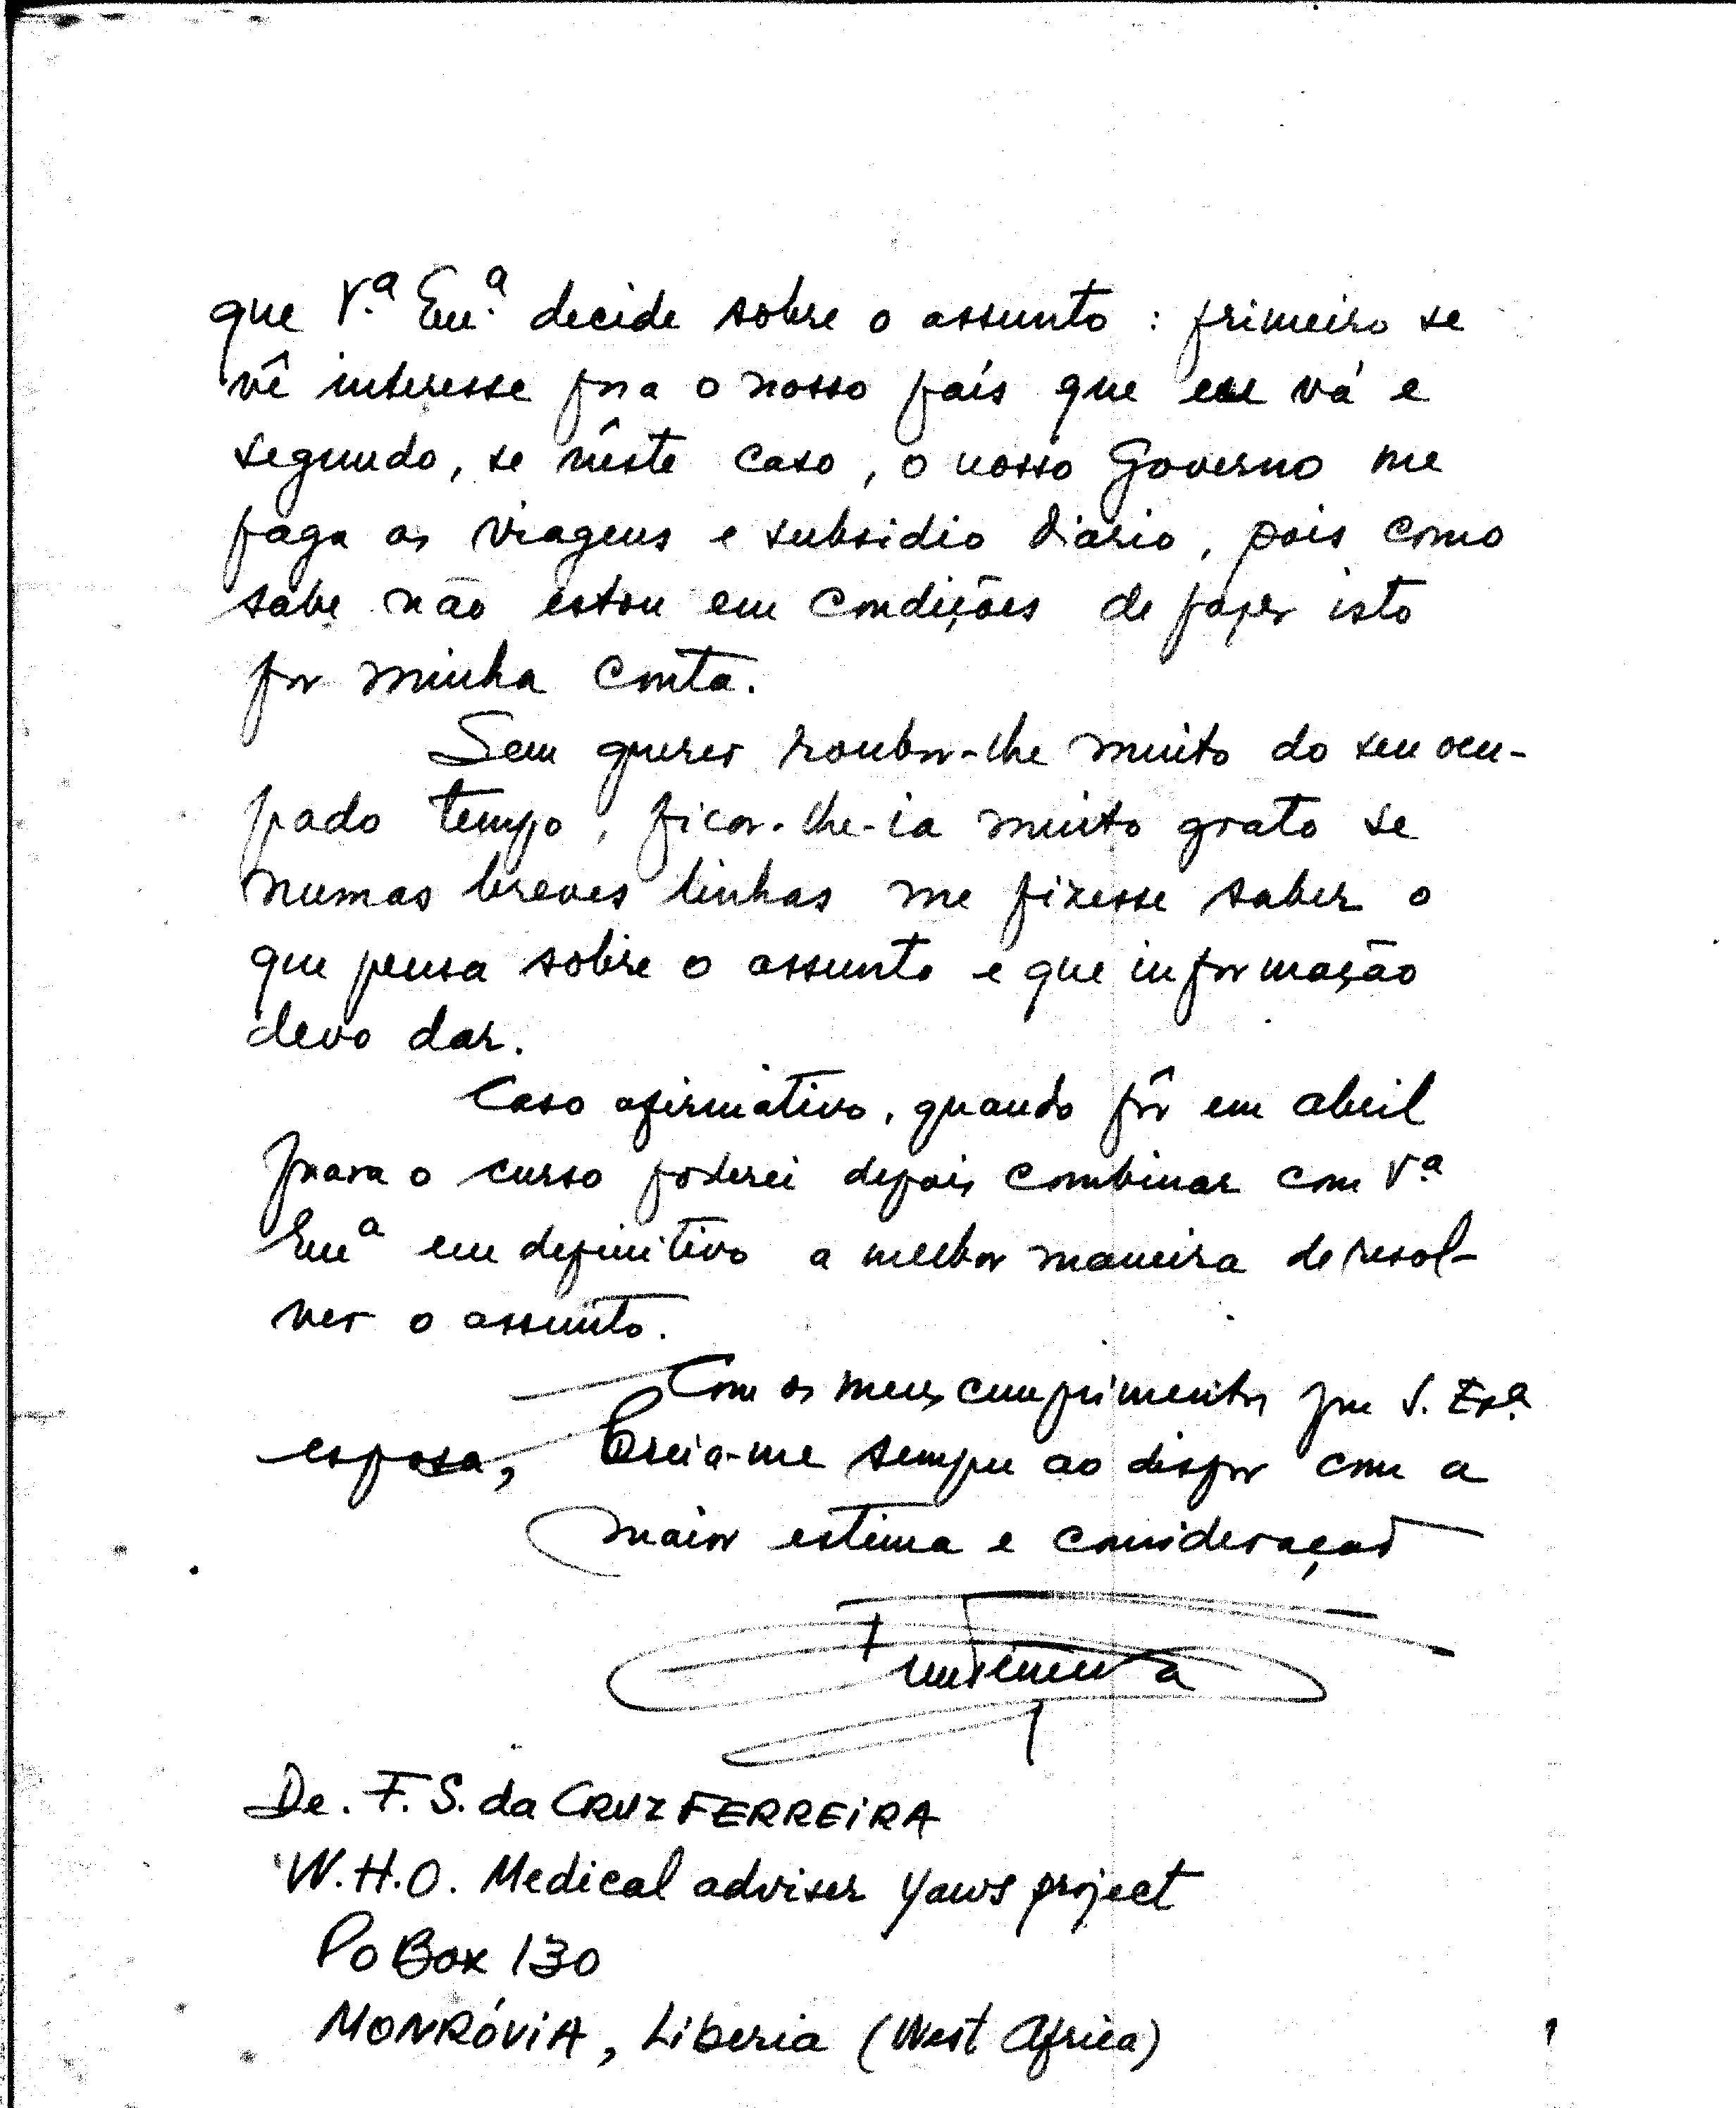 que V.ª Em.ª decide sobre o assunto : primeiro se
vê interesse pra o nosso país que eu vá e
segundo, se nêste caso, o nosso Governo me
paga as viagens e subsidio diário, pois como
sabe não estou em condições de fazer isto
por minha conta.
Sem querer roubar-lhe muito do seu ocu-
pado tempo, ficar-lhe-ia muito grato se
numas breves linhas me fizesse saber o
que pensa sobre o assunto e que informação
devo dar.
Caso afirmativo, quando fôr em abril
para o curso poderei depois combinar com V.ª
Em.ª em definitivo a melhor maneira de resol-
ver o assunto.
Com os meus cumprimentos pra S. Exª.
esposa, creia-me sempre ao dispor com a
maior estima e consideração
De. F. S. da CRUZ FERREIRA
W.H.O. Medical adviser yaws project
Po Box 130
MONRÓVIA, Liberia (West Africa)